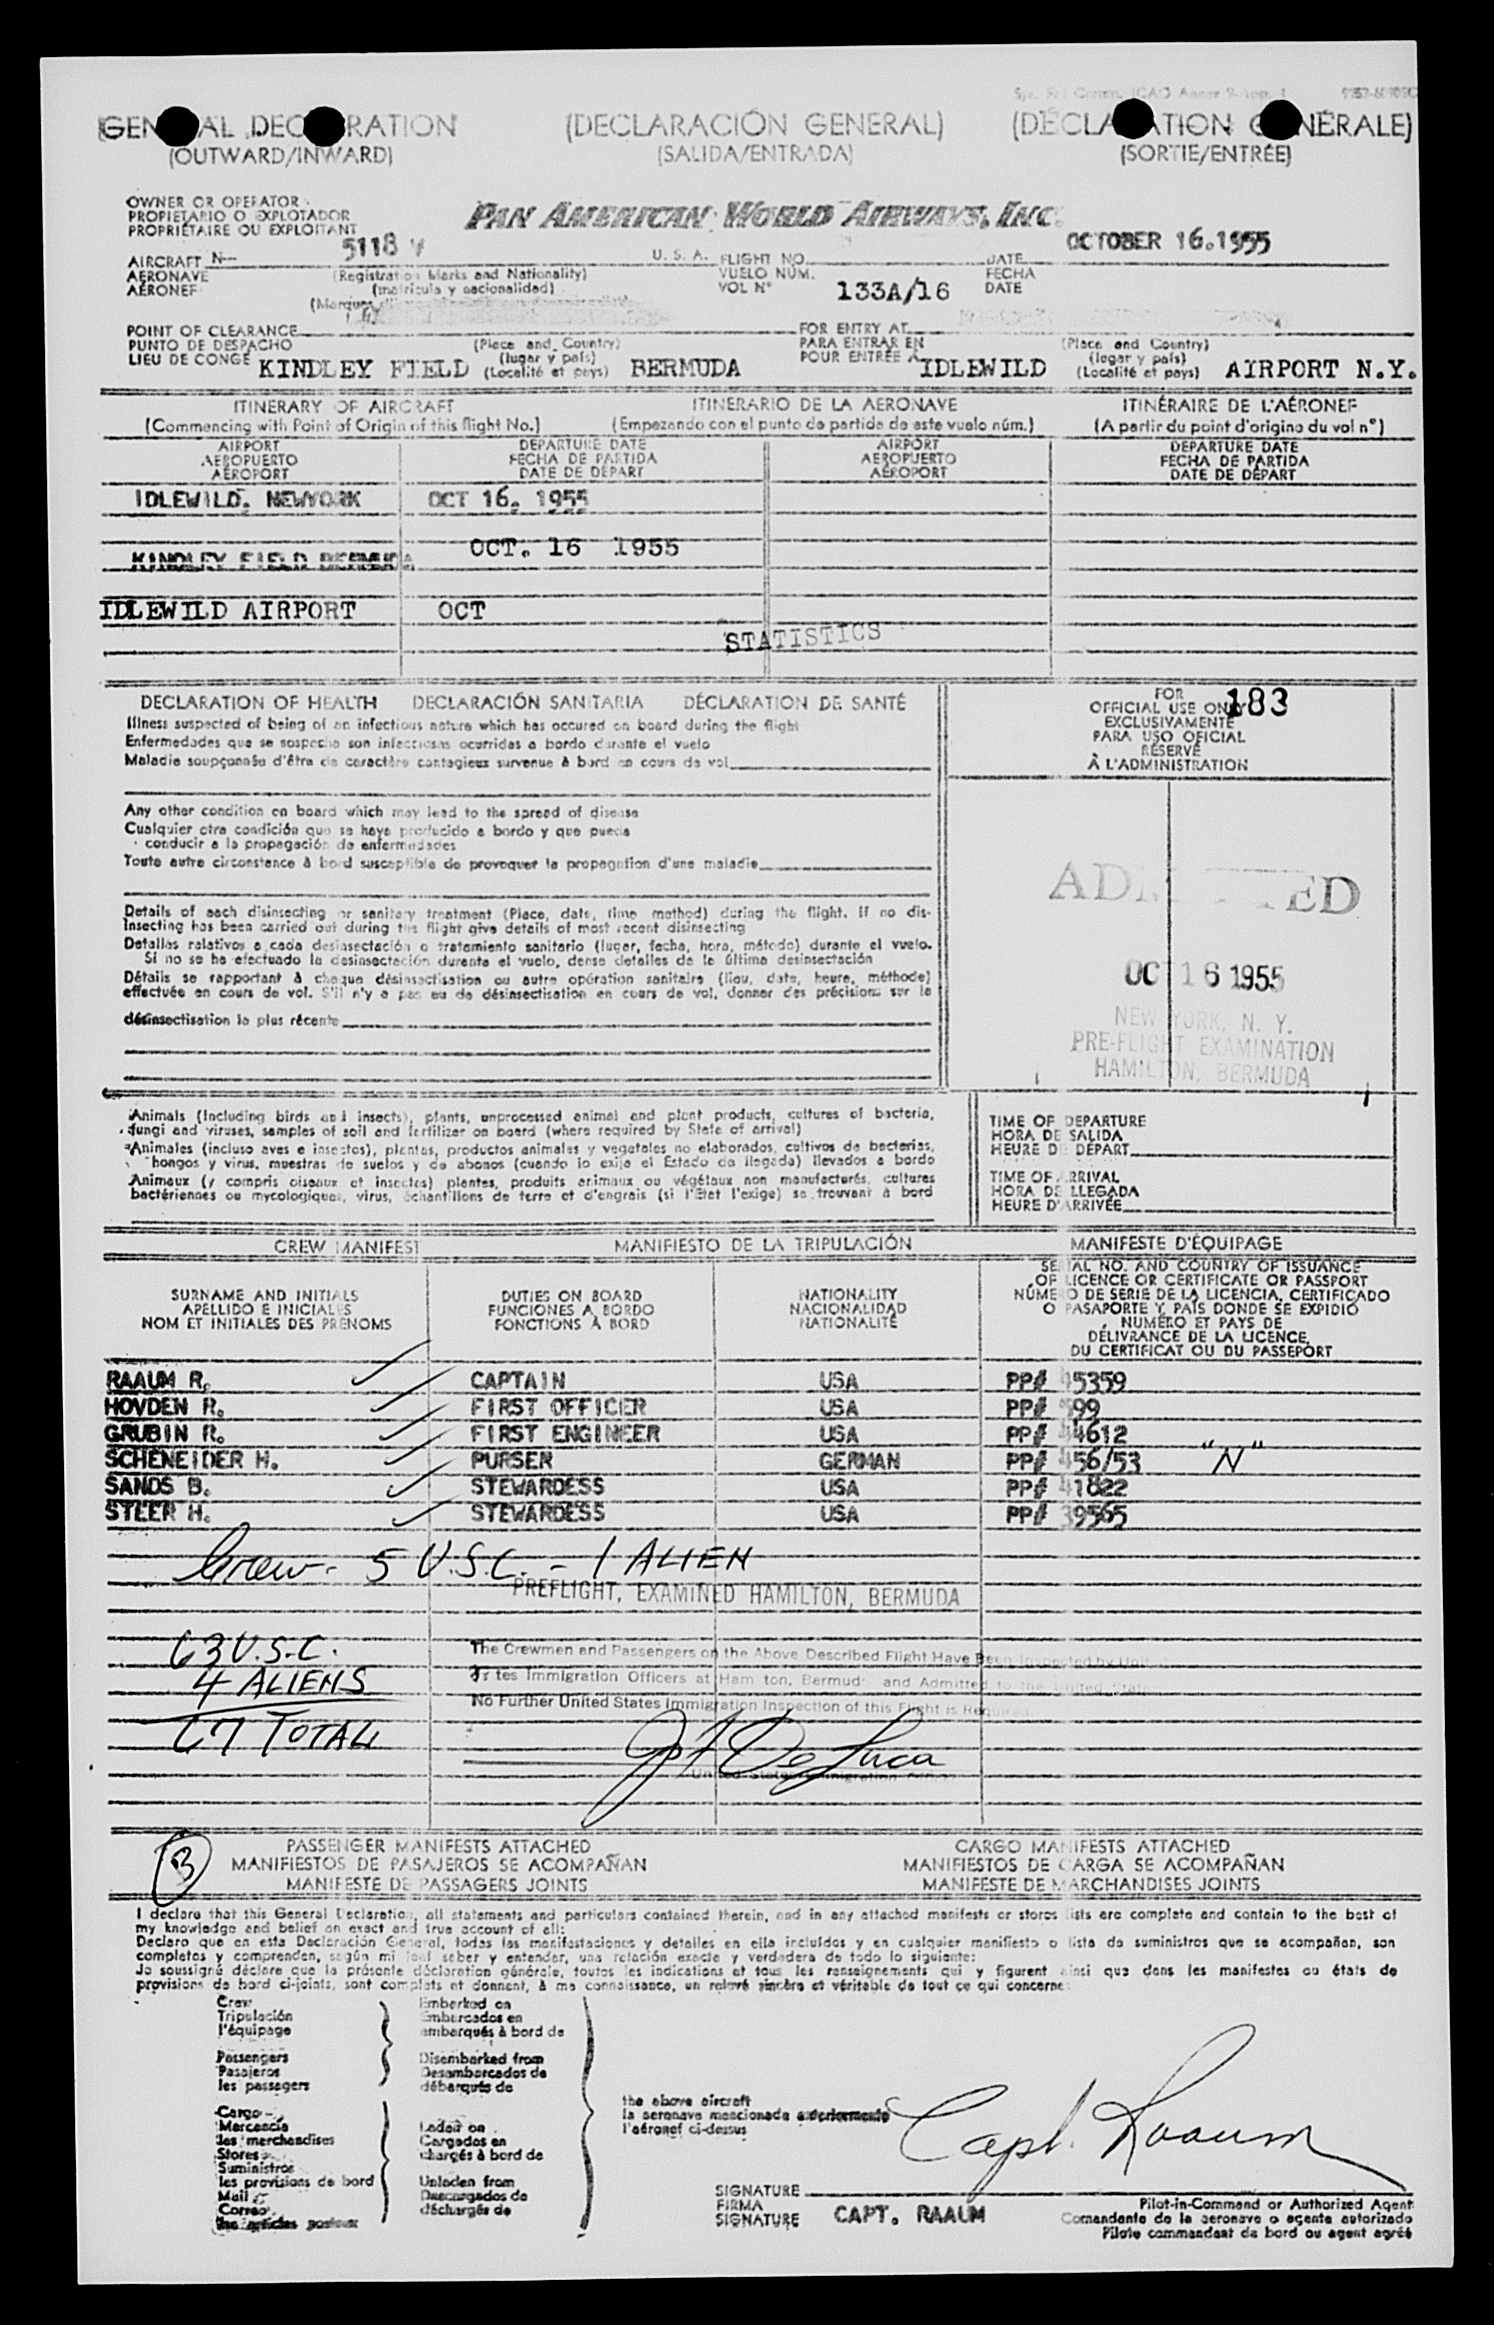 (DECLARACIÓN GENERAL)
(OUTWARD/INWARD) (SALIDA/ENTRADA) (SORTIE/ENTRÉE)
OWNER OR OPERATOR
PROPIETARIO O EXPLOTADOR
PROPRIÉTAIRE OU EXPLOITANT
PAN AMERICAN WORLD AIRWAYS, INC.
AIRCRAFT N- 5118 V U. S. A. FLIGHT NO. DATE OCTOBER 16.1955
AERONAVE (Registration Marks and Nationality) VUELO NÚM. FECHA
AÉRONEF (matrícula y nacionalidad) VOL N° 133A/16 DATE
(Marques
POINT OF CLEARANCE (Place and Country) FOR ENTRY AT (Place and Country)
PUNTO DE DESPACHO (lugar y país) PARA ENTRAR EN (lugar y país)
LIEU DE CONGÉ KINDLEY FIELD (Localité et pays) BERMUDA POUR ENTRÉE À IDLEWILD (Localité et pays) AIRPORT N.Y.
ITINERARY OF AIRCRAFT ITINERARIO DE LA AERONAVE ITINÉRAIRE DE L'AÉRONEF
(Commencing with Point of Origin of this flight No.) (Empezando con el punto de partida de este vuelo núm.) (A partir du point d'origine du vol n°)
AIRPORT DEPARTURE DATE AIRPORT DEPARTURE DATE
AEROPUERTO FECHA DE PARTIDA AEROPUERTO FECHA DE PARTIDA
AÉROPORT DATE DE DÉPART AÉROPORT DATE DE DÉPART
IDLEWILD. NEWYORK OCT 16. 1955
KINDLEY FIELD BERMUDA OCT. 16 1955
IDLEWILD AIRPORT OCT
STATISTICS
DECLARATION OF HEALTH DECLARACIÓN SANITARIA DÉCLARATION DE SANTÉ
Illness suspected of being of an infectious nature which has occured on board during the flight
Enfermedades que se sospecha son infecciosas ocurridas a bordo durante el vuelo
Maladie soupçonnée d'être de caractère contagieux survenue à bord en cours de vol
FOR
OFFICIAL USE ONLY 183
EXCLUSIVAMENTE
PARA USO OFICIAL
RÉSERVÉ
À L'ADMINISTRATION
Any other condition on board which may lead to the spread of disease
Cualquier otra condición que se haya producido a bordo y que pueda
conducir a la propagación de enfermedades
Toute autre circonstance à bord susceptible de provoquer la propagation d'une maladie
Details of each disinsecting or sanitary treatment (Place, date, time method) during the flight. If no dis-
insecting has been carried out during the flight give details of most recent disinsecting
Detalles relativos a cada desinsectación o tratamiento sanitario (lugar, fecha, hora, método) durante el vuelo.
Si no se ha efectuado la desinsectación durante el vuelo, dense detalles de la última desinsectación
Détails se rapportant à chaque désinsectisation ou autre opération sanitaire (lieu, date, heure, méthode)
effectuée en cours de vol. S'il n'y a pas eu de désinsectisation en cours de vol, donner des précisions sur la
désinsectisation la plus récente
OCT 16 1955
NEW YORK, N. Y.
PRE-FLIGHT EXAMINATION
HAMILTON, BERMUDA
Animals (Including birds and insects), plants, unprocessed animal and plant products, cultures of bacteria,
fungi and viruses, samples of soil and fertilizer on board (where required by State of arrival)
Animales (incluso aves e insectos), plantas, productos animales y vegetales no elaborados, cultivos de bacterias,
hongos y virus, muestras de suelos y de abonos (cuando lo exija el Estado de llegada) llevados a bordo
Animaux (y compris oiseaux et insectes) plantes, produits animaux ou végétaux non manufacturés, cultures
bactériennes ou mycologiques, virus, échantillons de terre et d'engrais (si l'État l'exige) se trouvant à bord
TIME OF DEPARTURE
HORA DE SALIDA
HEURE DE DÉPART
TIME OF ARRIVAL
HORA DE LLEGADA
HEURE D'ARRIVÉE
CREW MANIFEST MANIFIESTO DE LA TRIPULACIÓN MANIFESTE D'ÉQUIPAGE
SURNAME AND INITIALS
APELLIDO E INICIALES
NOM ET INITIALES DES PRÉNOMS
DUTIES ON BOARD
FUNCIONES A BORDO
FONCTIONS À BORD
NATIONALITY
NACIONALIDAD
NATIONALITÉ
SERIAL NO. AND COUNTRY OF ISSUANCE
OF LICENCE OR CERTIFICATE OR PASSPORT
NÚMERO DE SERIE DE LA LICENCIA, CERTIFICADO
O PASAPORTE Y PAÍS DONDE SE EXPIDIÓ
NUMÉRO ET PAYS DE
DÉLIVRANCE DE LA LICENCE,
DU CERTIFICAT OU DU PASSEPORT
RAAUM R. CAPTAIN USA PP# 5359
HOVDEN R. FIRST OFFICER USA PP# 99
GRUBIN R. FIRST ENGINEER USA PP# 4612
SCHENEIDER H. PURSER GERMAN PP# 56/53 "N"
SANDS B. STEWARDESS USA PP# 1822
STEER H. STEWARDESS USA PP# 39565
Crew - 5 U.S.C. - 1 ALIEN
PREFLIGHT, EXAMINED HAMILTON, BERMUDA
63 U.S.C.
4 ALIENS
67 TOTAL
The Crewmen and Passengers on the Above Described Flight Have Been Inspected by
Immigration Officers at Ham ton, Bermud and Admitted to the United
No Further United States Immigration Inspection of this Flight is Required
De Luca
3 PASSENGER MANIFESTS ATTACHED CARGO MANIFESTS ATTACHED
MANIFIESTOS DE PASAJEROS SE ACOMPAÑAN MANIFIESTOS DE CARGA SE ACOMPAÑAN
MANIFESTE DE PASSAGERS JOINTS MANIFESTE DE MARCHANDISES JOINTS
I declare that this General Declaration, all statements and particulars contained therein, and in any attached manifests or stores lists are complete and contain to the best of
my knowledge and belief an exact and true account of all:
Declaro que en esta Declaración General, todas las manifestaciones y detalles en ella incluídos y en cualquier manifiesto o lista de suministros que se acompañan, son
completos y comprenden, según mi leal saber y entender, una relación exacta y verdadera de todo lo siguiente:
Je soussigné déclare que la présente déclaration générale, toutes les indications et tous les renseignements qui y figurent ainsi que dans les manifestes ou états de
provisions de bord ci-joints, sont complets et donnent, à ma connaissance, un relevé sincère et véritable de tout ce qui concerne:
Crew
Tripulación
l'équipage
Passengers
Pasajeros
les passagers
Cargo
Mercancía
les marchandises
Stores
Suministros
les provisions de bord
Mail
Correo
Embarked on
Embarcados en
embarqués à bord de
Disembarked from
Desembarcados de
débarqués de
Laden on
Cargados en
chargés à bord de
Unladen from
Descargados de
déchargés de
the above aircraft
la aeronave mencionada anteriormente
l'aéronef ci-dessus
Capt. Raaum
SIGNATURE
FIRMA
SIGNATURE CAPT. RAAUM
Pilot-in-Command or Authorized Agent
Comandante de la aeronave o agente autorizado
Pilote commandant de bord ou agent agréé